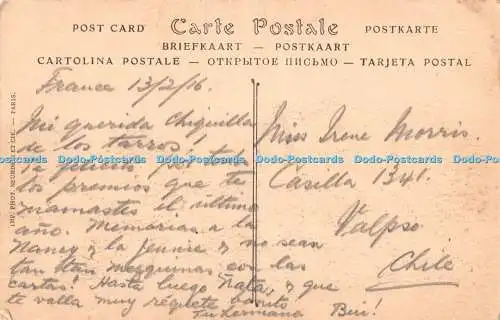 POST CARD Carte Postale POSTKARTE
BRIEFKAART — POSTKAART
CARTOLINA POSTALE — ОТКРЫТОЕ ПИСЬМО — TARJETA POSTAL
IMP. PHOT. NEURDEIN ET CIE. — PARIS.
France 13/2/16.
Mi querida Chiquilla
de los tarros!
Te felicito por todo
los premios que te
mamastes el ultimo
año. Memorias a la
Nancy y la Jennie y no sean
tan mezquinas con las
cartas! Hasta luego Ñata, y que
te valla muy requete bonito
Tu hermana Biri!
Miss Irene Morris.
Casilla 1341.
Valpso
Chile
Dodo-Postcards Dodo-Postcards Dodo-Postcards Dodo-Postcards
Dodo-Postcards Dodo-Postcards Dodo-Postcards Dodo-Postcards